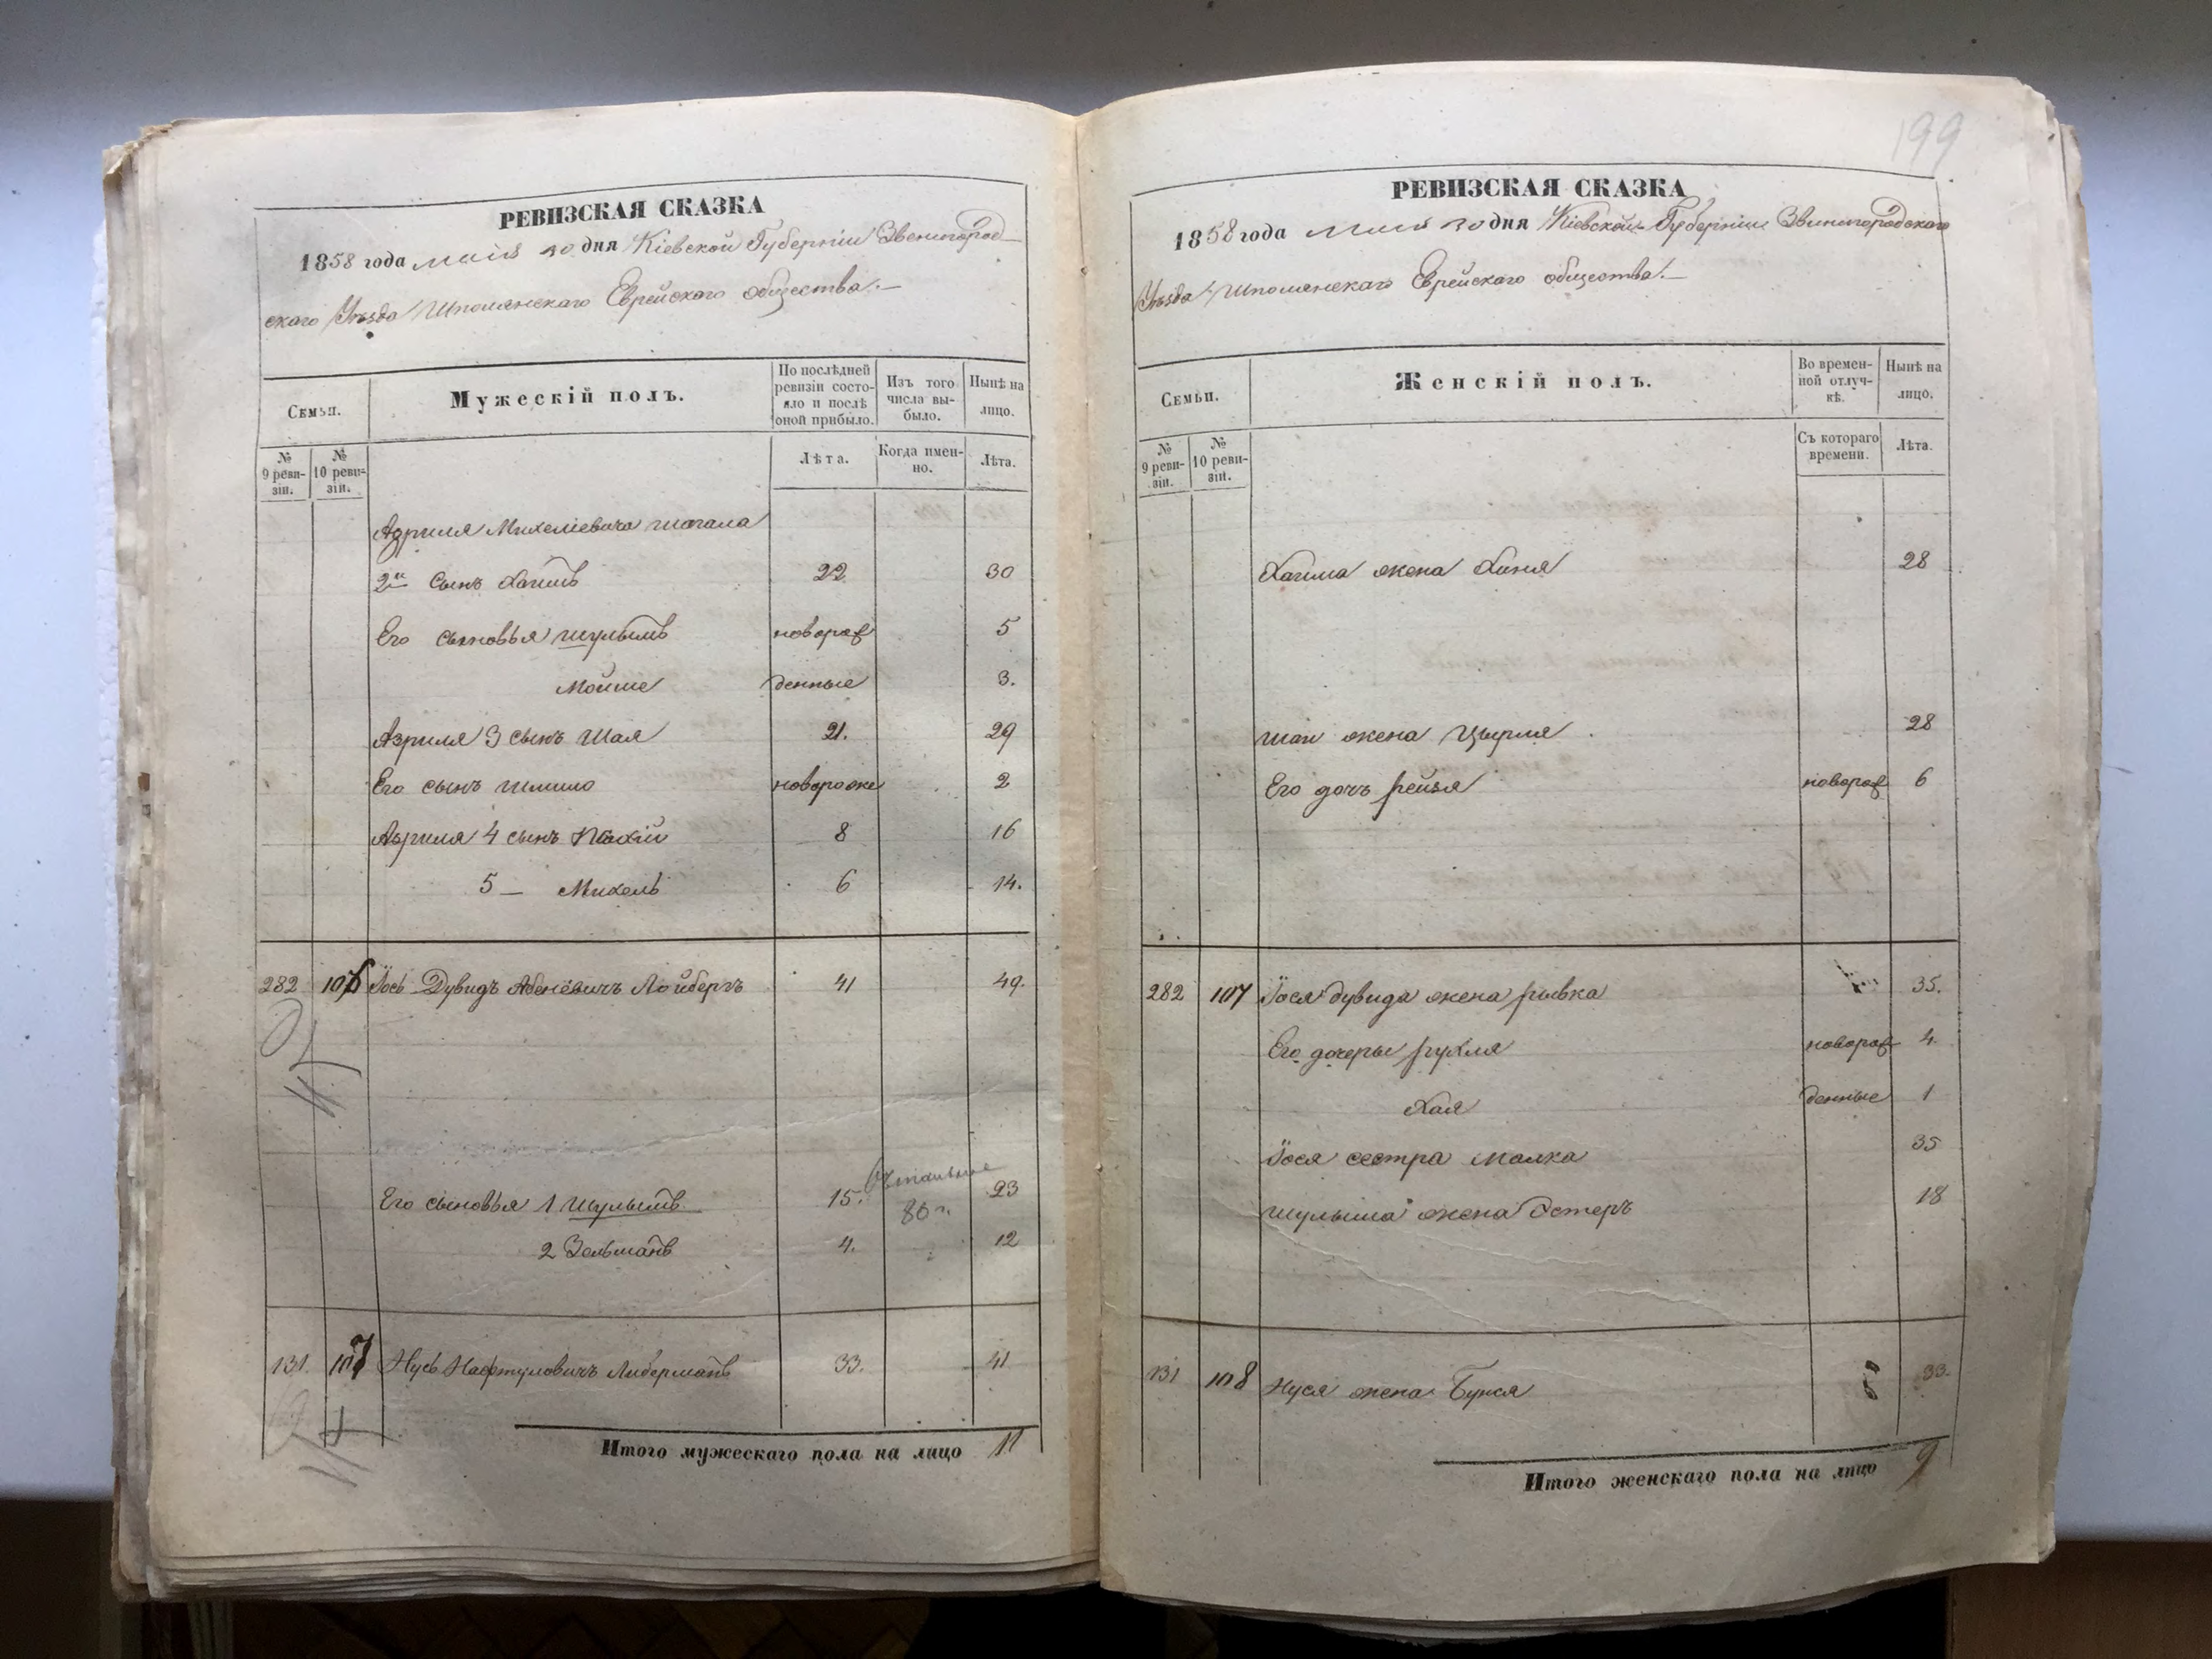 РЕВИЗСКАЯ СКАЗКА
1858 года маія 30 дня Кіевской Губерніи Звенигород-
скаго Уѣзда Шполянскаго Еврейскаго общества.—
Семьи.
Мужескій полъ.
По послѣдней ревизіи состо-
яло и послѣ оной прибыло.
Изъ того числа вы-
было.
Нынѣ на лицо.
№ 9 реви-
зіи.
№ 10 реви-
зіи.
Лѣта.
Когда имен-
но.
Лѣта.
Азриля Михеліевича
2й сынъ Хаимъ 22 30
Его сыновья Шулымъ новорож 5
Мойше денные 3.
Азриля 3 сынъ Шая 21. 29
Его сынъ Шлиомо новорожд 2
Азриля 4 сынъ 8 16
5 — Михель 6 14.
282 106 Іось Дувидъ Лойбергъ 41 49.
Его сыновья 1 Шулымъ 15. 23
86 г.
2 Зельманъ 4. 12
131. 107 Нусь Нафтуловичъ Либерманъ 33. 41
Итого мужескаго пола на лицо 11
199
РЕВИЗСКАЯ СКАЗКА
1858 года маія 30 дня Кіевской Губерніи Звенигородскаго
Уѣзда Шполянскаго Еврейскаго общества.—
Семьи.
Женскій полъ.
Во времен-
ной отлуч-
кѣ.
Нынѣ на лицо.
№ 9 реви-
зіи.
№ 10 реви-
зіи.
Съ котораго времени.
Лѣта.
Хаима жена Хиня 28
Шаи жена Цырля 28
Его дочь Рейзя новорож 6
282 107 Іося Дувида жена Рывка 35.
Его дочеры Рухля новорож 4.
Хая денные 1
Іося сестра Малка 35
Шулыма жена Эстеръ 18
131 108 Нуся жена Буня 33.
Итого женскаго пола на лицо 9